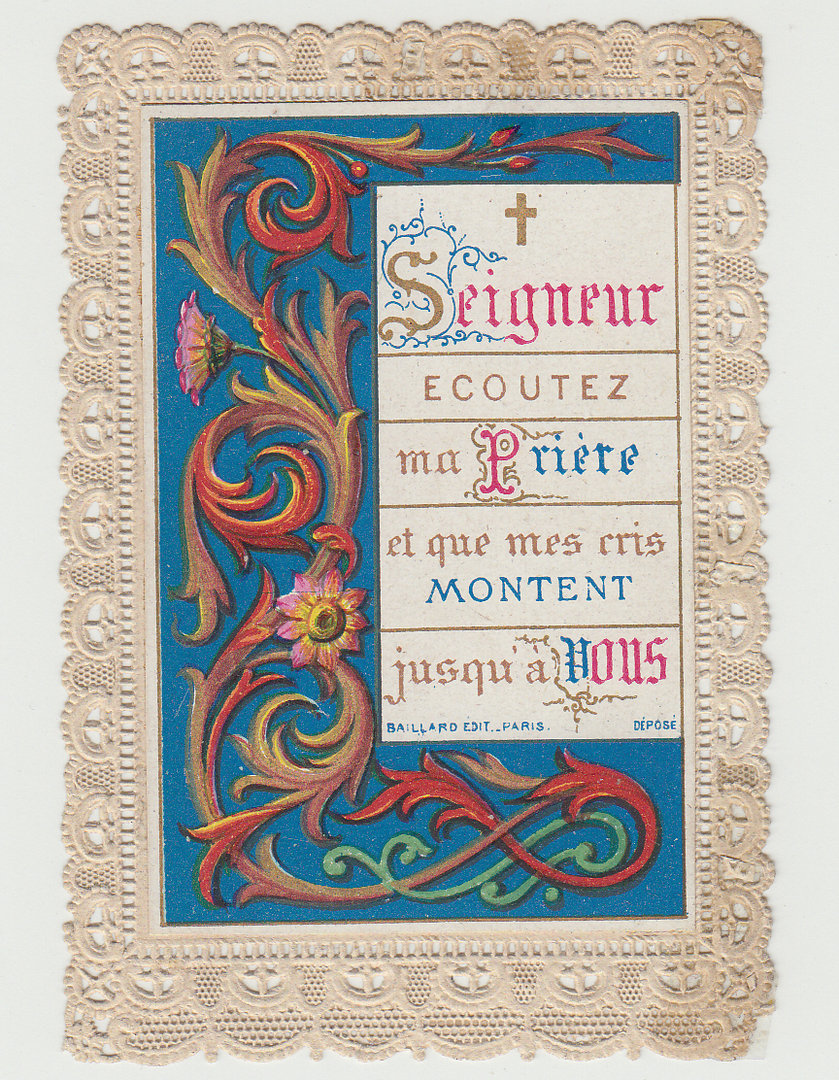 Seigneur
ECOUTEZ
ma Prière
et que mes cris
MONTENT
jusqu'à Vous
BAILLARD EDIT._PARIS. DÉPOSÉ